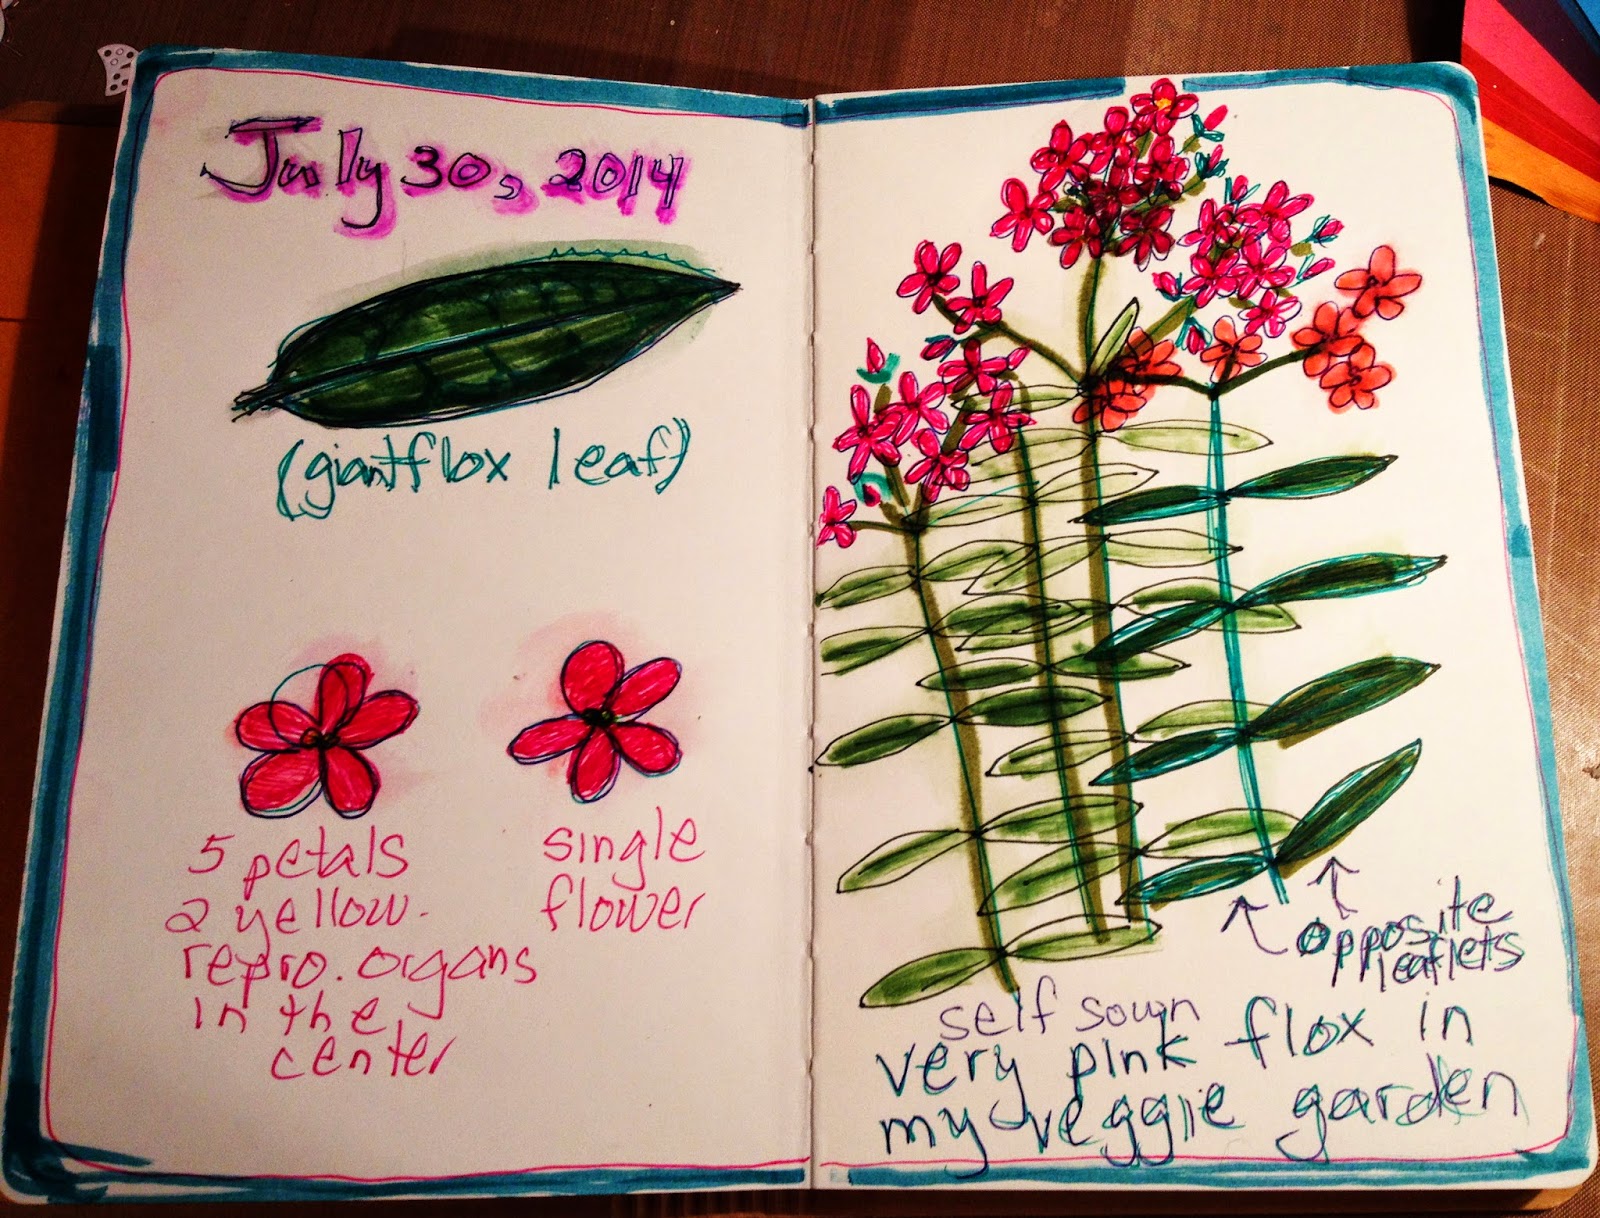 July 30, 2014
(giant flox leaf)
5 petals
2 yellow
repro. organs
in the
center
single
flower
opposite
leaflets
self sown
very pink flox in
my veggie garden